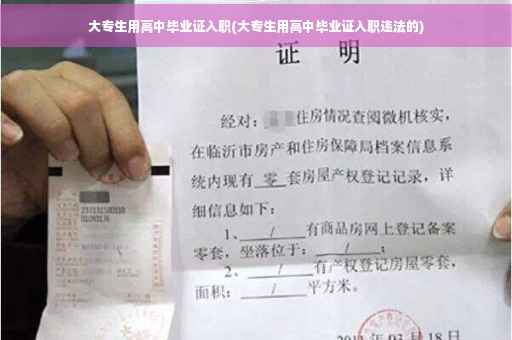 大专生用高中毕业证入职(大专生用高中毕业证入职违法的)
证 明
经对： 住房情况查阅微机核实，
在临沂市房产和住房保障局档案信息系
统内现有 零 套房屋产权登记记录，详
细信息如下：
1、 / 有商品房网上登记备案
零套，坐落位于： / ；
2、 / 有产权登记房屋零套，
面积： / 平方米。
03 月 18 日